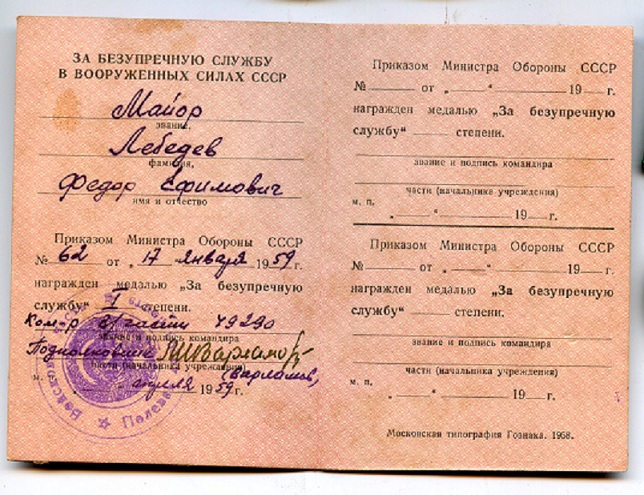 ЗА БЕЗУПРЕЧНУЮ СЛУЖБУ
В ВООРУЖЕННЫХ СИЛАХ СССР
Майор
звание,
Лебедев
фамилия,
Федор Ефимович
имя и отчество
Приказом Министра Обороны СССР
№ 62 от „17 января 1959 г.
награжден медалью „За безупречную
службу“ I степени.
Ком-р в/части 49290
звание и подпись командира
Подполковник Варламов
части (начальника учреждения)
(Варламов)
м. п. апреля 1959 г.
Полевая
Приказом Министра Обороны СССР
№ от „ “ 19 г.
награжден медалью „За безупречную
службу“ степени.
звание и подпись командира
части (начальника учреждения)
м. п.
„ “ 19 г.
Приказом Министра Обороны СССР
№ от „ “ 19 г.
награжден медалью „За безупречную
службу“ степени.
звание и подпись командира
части (начальника учреждения)
м. п.
„ “ 19 г.
Московская типография Гознака. 1958.